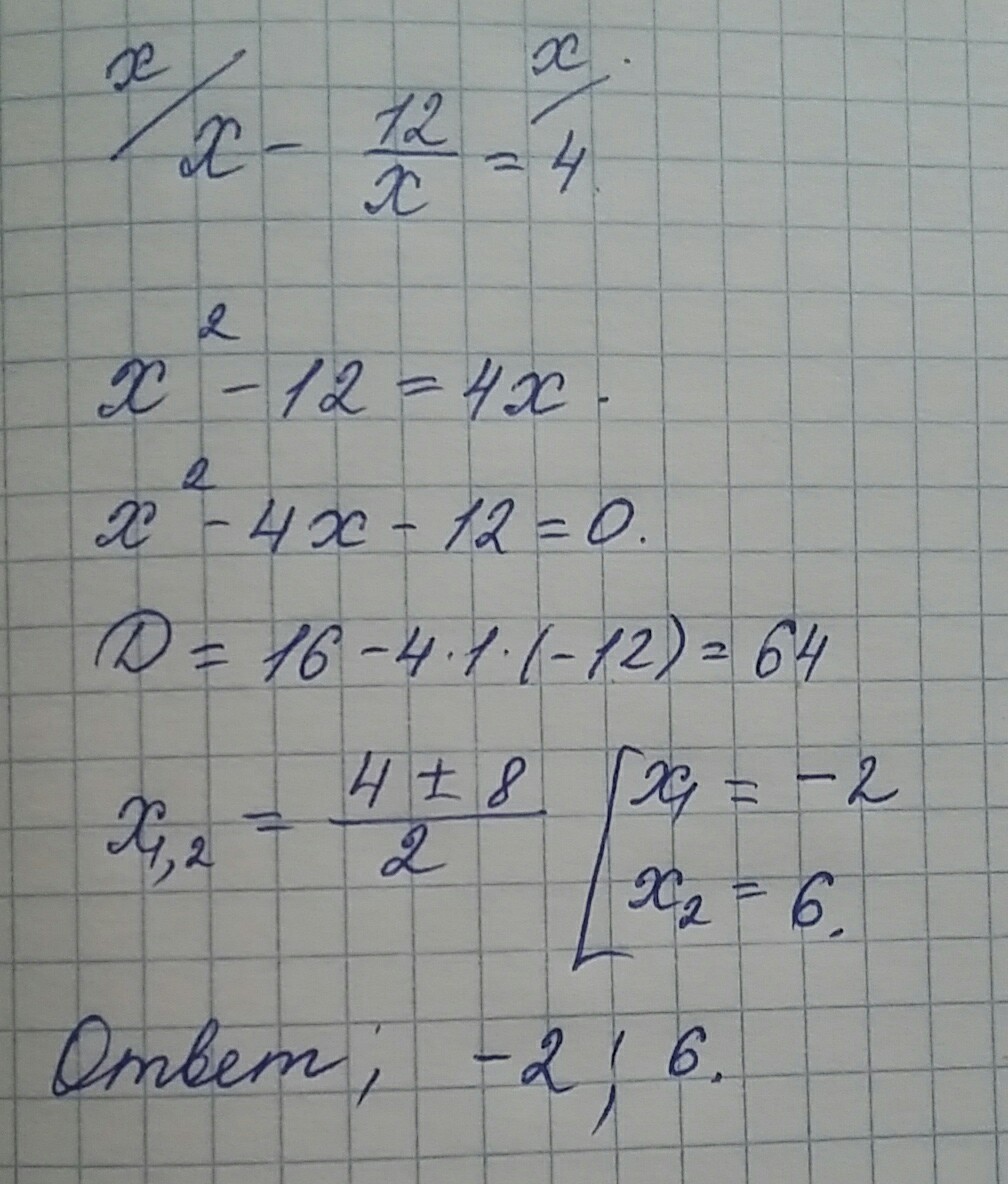 x/ x - 12/x = x/ 4.
x² - 12 = 4x.
x² - 4x - 12 = 0.
D = 16 - 4·1·(-12) = 64
x₁,₂ = (4 ± 8)/2 [ x₁ = -2
x₂ = 6.
Ответ; -2; 6.